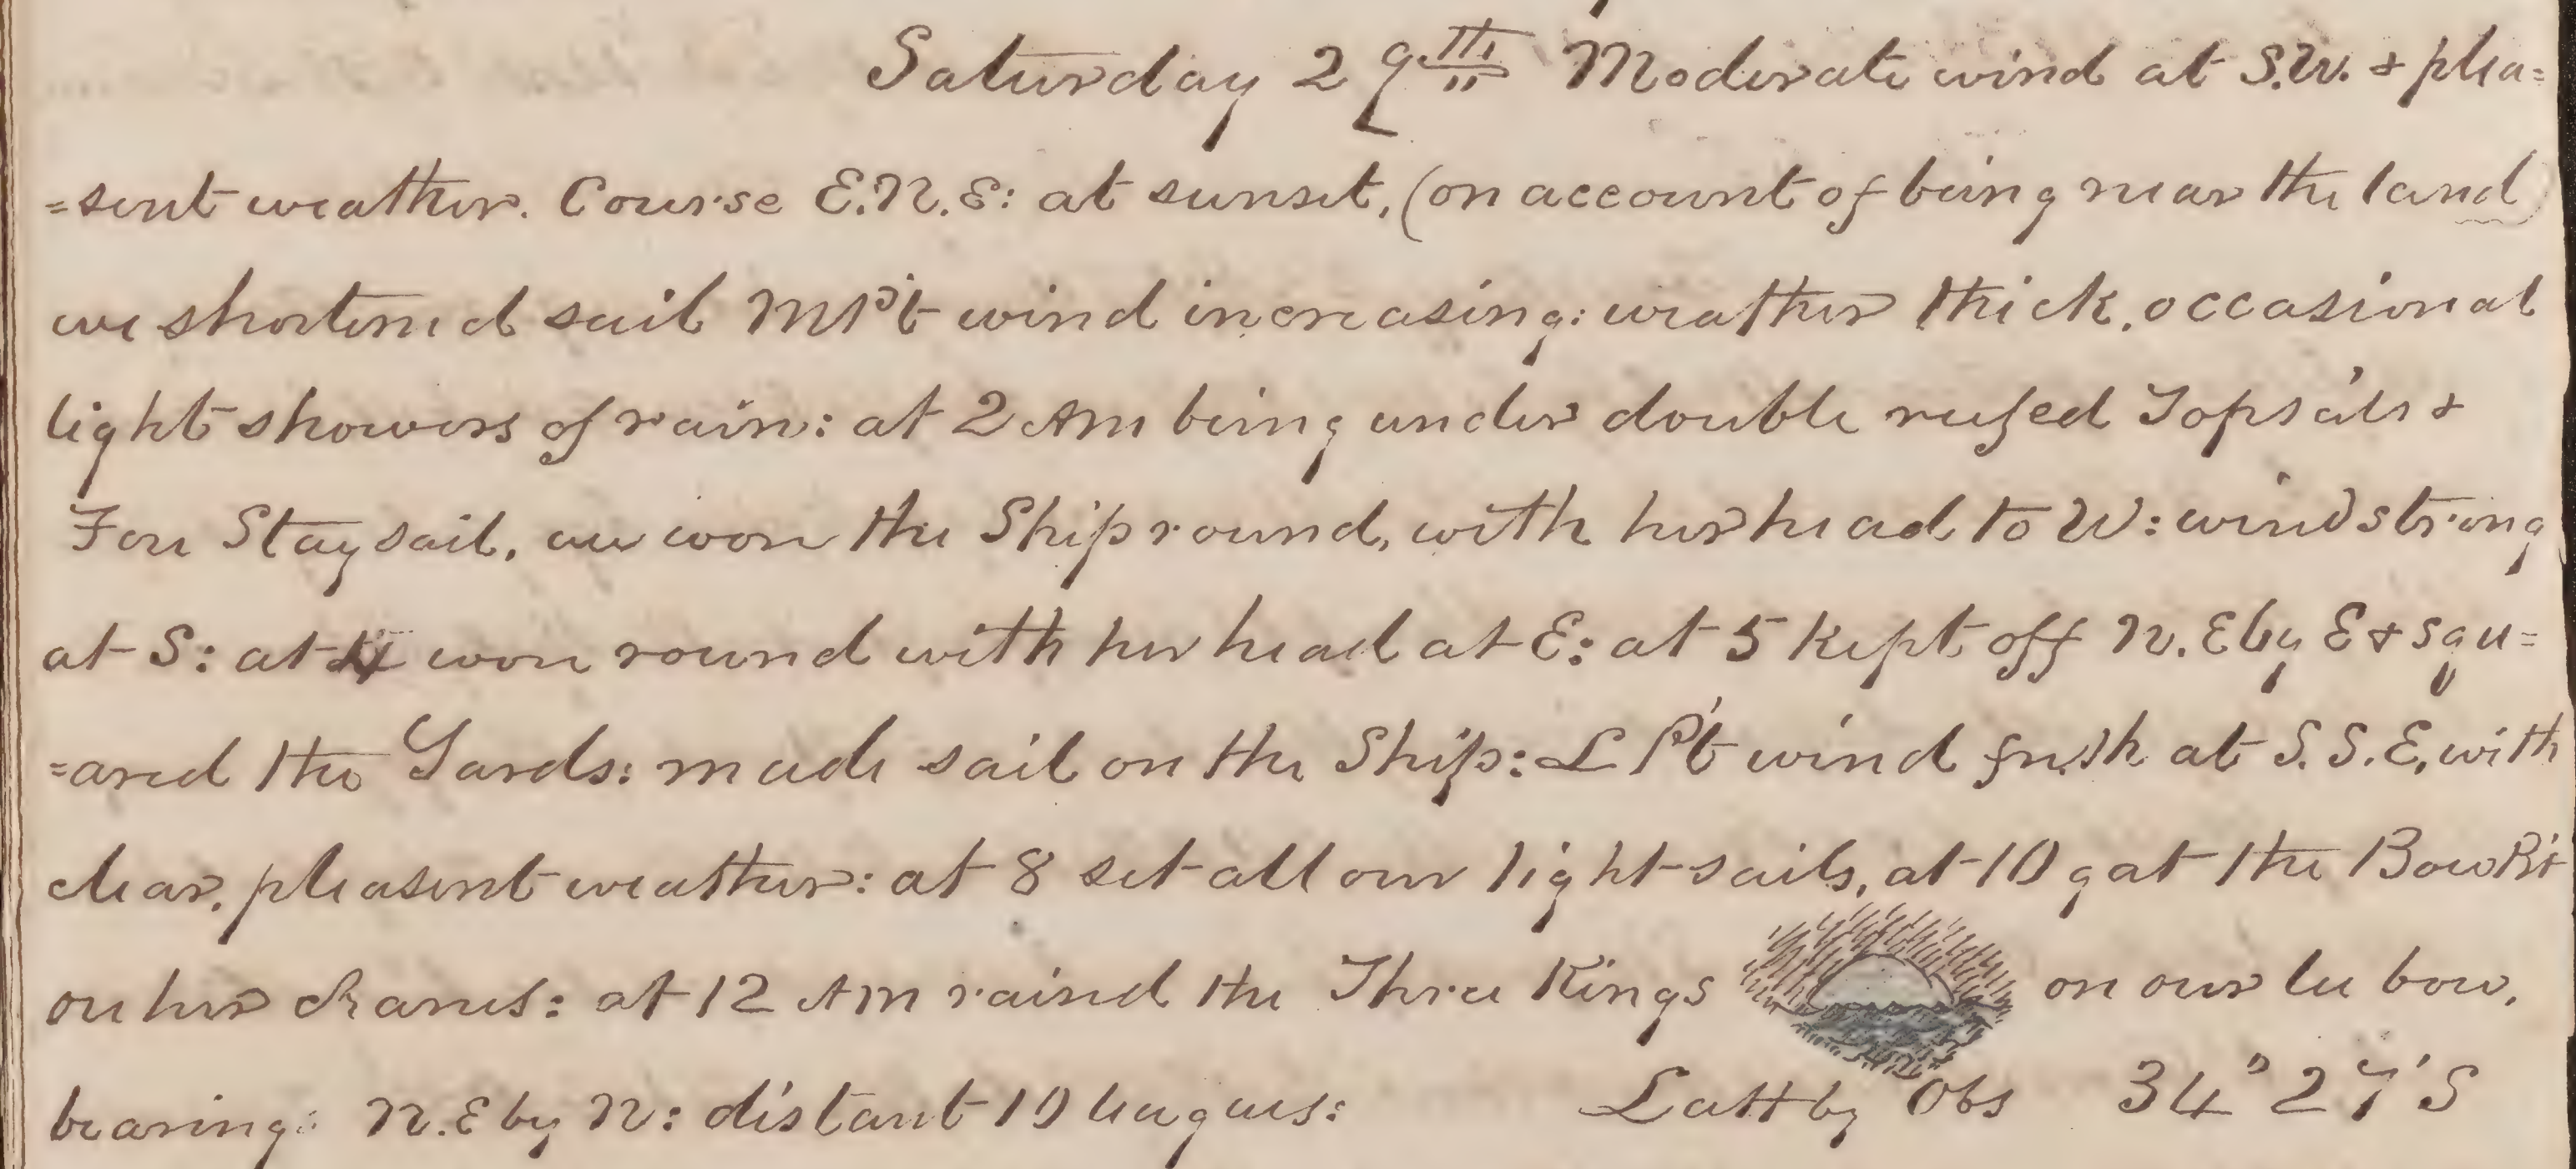 Saturday 29th Moderate wind at S.W. & plea=
=sent weather. Course E.N.E: at sunset, (on account of being near the land)
we shortened sail MPt wind increasing: weather thick, occasional
light showers of rain: at 2 AM being under double reefed Topsails &
Fore Staysail, we wore the Ship round, with her head to W: wind strong
at S: at 4 wore round with her head at E: at 5 kept off N.E by E & squ=
=ared the Yards: made sail on the Ship: LPt wind fresh at S.S.E, with
clear, pleasent weather: at 8 set all our light sails, at 10 gat the Bow Bt
on her Cranes: at 12 AM raised the Three Kings on our lee bow,
bearing: N.E by N: distant 10 leagues: Latt by Obs 34° 27' S